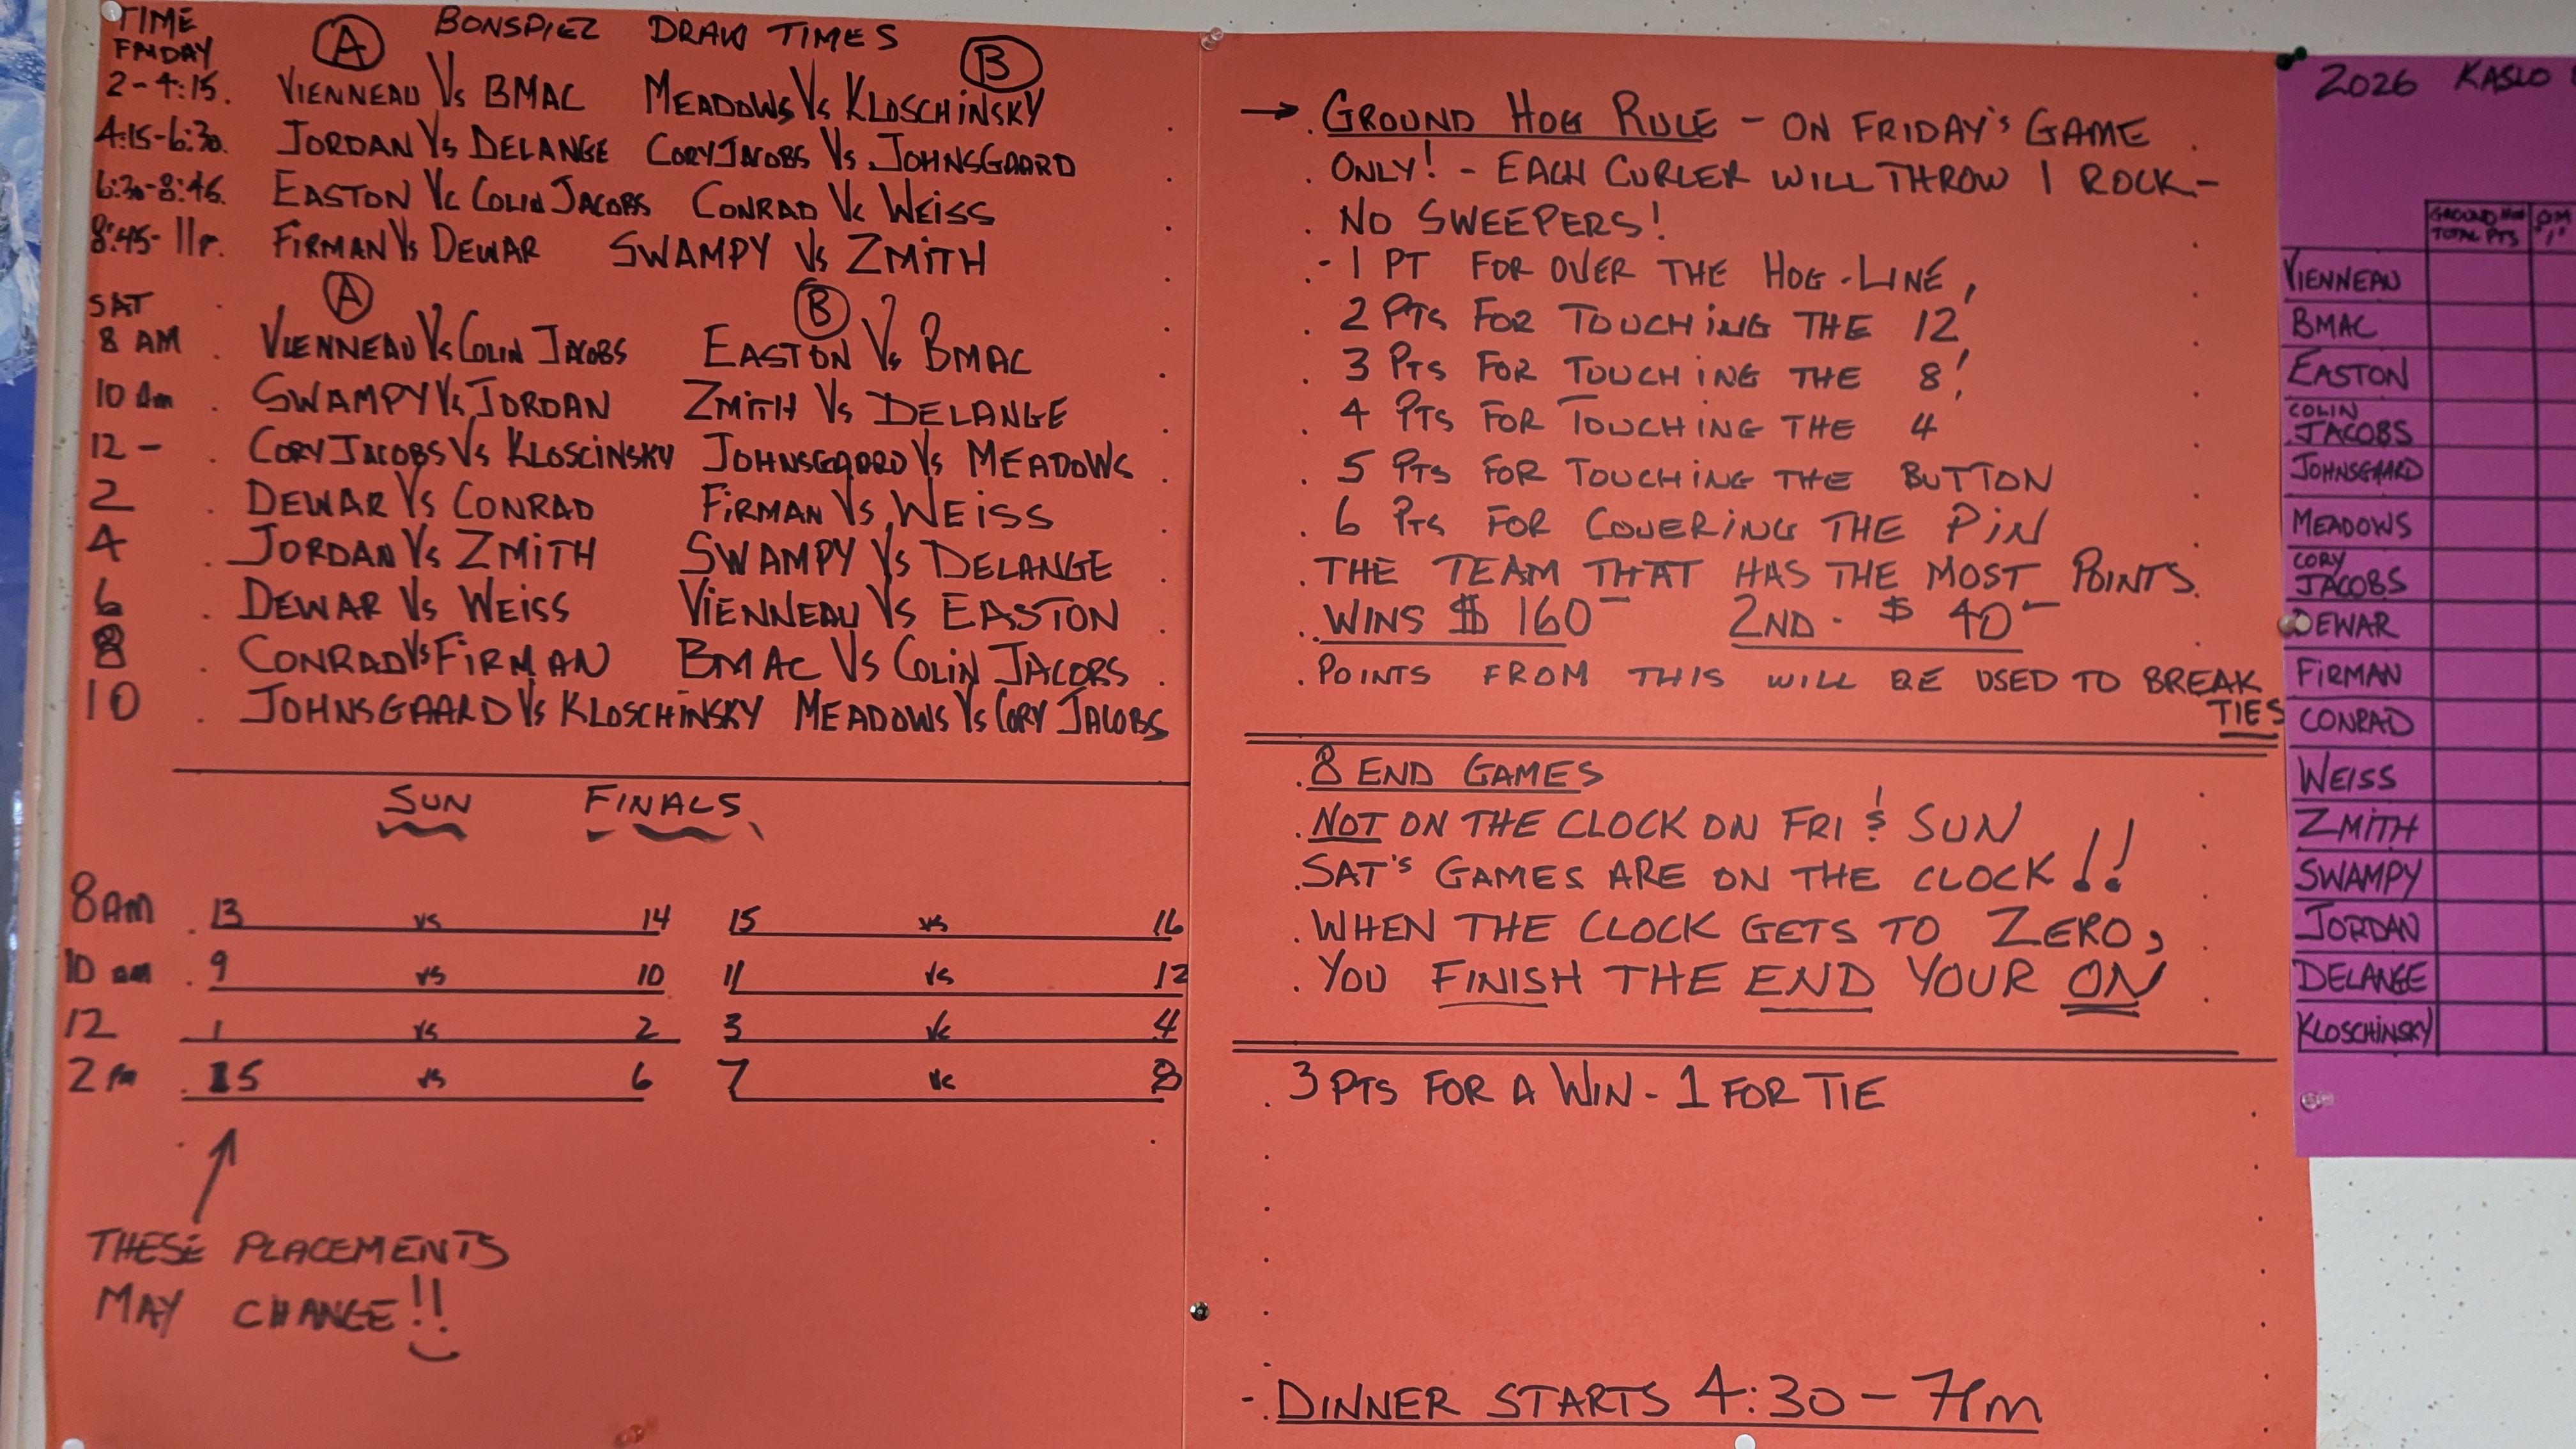 TIME BONSPIEL DRAW TIMES
FRIDAY A B
2-4:15. VIENNEAU Vs BMAC MEADOWS Vs KLOSCHINSKY
4:15-6:30. JORDAN Vs DELANGE CORY JACOBS Vs JOHNSGAARD
6:30-8:45. EASTON Vs COLIN JACOBS CONRAD Vs WEISS
8:45-11P. FIRMAN Vs DEWAR SWAMPY Vs ZMITH
SAT A B
8 AM . VIENNEAU Vs COLIN JACOBS EASTON Vs BMAC
10 Am . SWAMPY Vs JORDAN ZMITH Vs DELANGE
12 - . CORY JACOBS Vs KLOSCINSKY JOHNSGAARD Vs MEADOWS
2 . DEWAR Vs CONRAD FIRMAN Vs WEISS
4 . JORDAN Vs ZMITH SWAMPY Vs DELANGE
6 . DEWAR Vs WEISS VIENNEAU Vs EASTON
8 . CONRAD Vs FIRMAN BMAC Vs COLIN JACOBS
10 . JOHNSGAARD Vs KLOSCHINSKY MEADOWS Vs CORY JACOBS
SUN FINALS
8 AM . 13 vs 14 15 vs 16
10 am . 9 vs 10 11 vs 12
12 1 vs 2 3 vs 4
2 Pm . 5 vs 6 7 vs 8
THESE PLACEMENTS
MAY CHANGE!!
→ . GROUND HOG RULE - ON FRIDAY'S GAME
. ONLY! - EACH CURLER WILL THROW 1 ROCK -
. NO SWEEPERS!
- 1 PT FOR OVER THE HOG-LINE,
. 2 PTS FOR TOUCHING THE 12'
. 3 PTS FOR TOUCHING THE 8'
. 4 PTS FOR TOUCHING THE 4'
. 5 PTS FOR TOUCHING THE BUTTON
. 6 PTS FOR COVERING THE PIN
. THE TEAM THAT HAS THE MOST POINTS
. WINS $ 160- 2ND - $ 40-
. POINTS FROM THIS WILL BE USED TO BREAK
TIES
. 8 END GAMES
. NOT ON THE CLOCK ON FRI & SUN
. SAT'S GAMES ARE ON THE CLOCK!!
. WHEN THE CLOCK GETS TO ZERO,
. YOU FINISH THE END YOUR ON
. 3 PTS FOR A WIN - 1 FOR TIE
- . DINNER STARTS 4:30 - 7Pm
2026 KASLO
GROUND HOG
TOTAL PTS
VIENNEAU
BMAC
EASTON
COLIN
JACOBS
JOHNSGAARD
MEADOWS
CORY
JACOBS
DEWAR
FIRMAN
CONRAD
WEISS
ZMITH
SWAMPY
JORDAN
DELANGE
KLOSCHINSKY